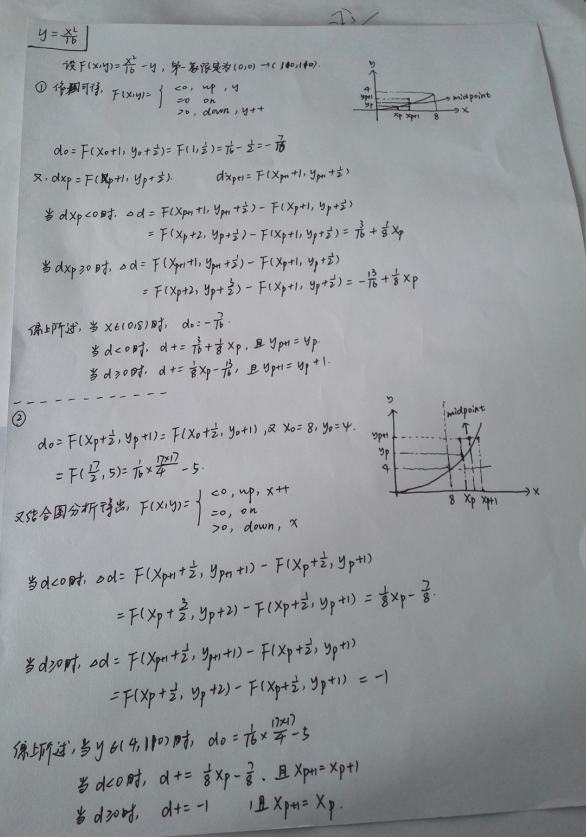 y = x²/16
设 F(x,y) = x²/16 - y, 第一象限里为(0,0) → (
① 可得, F(x,y) = { <0, up, y
=0 on
>0, down, y++
y
4
yp+1
yp
midpoint
xp xp+1 8 x
d₀ = F(x₀+1, y₀+1/2) = F(1, 1/2) = 1/16 - 1/2 = -7/16
又, dxp = F(xp+1, yp+1/2). dxp+1 = F(xp+1+1, yp+1+1/2)
当 dxp<0时, △d = F(xp+1+1, yp+1+1/2) - F(xp+1, yp+1/2)
= F(xp+2, yp+1/2) - F(xp+1, yp+1/2) = 3/16 + 1/8 xp
当 dxp≥0时, △d = F(xp+1+1, yp+1+1/2) - F(xp+1, yp+1/2)
= F(xp+2, yp+3/2) - F(xp+1, yp+1/2) = -13/16 + 1/8 xp
综上所述, 当 x∈(0,8)时, d₀ = -7/16.
当 d<0时, d += 3/16 + 1/8 xp, 且 yp+1 = yp.
当 d≥0时, d += 1/8 xp - 13/16, 且 yp+1 = yp+1.
②
d₀ = F(xp+1/2, yp+1) = F(x₀+1/2, y₀+1), 又 x₀=8, y₀=4.
= F(17/2, 5) = 1/16 × 17×17/4 - 5.
y
midpoint
yp+1
yp
4
8 xp xp+1 x
又结合图分析得出, F(x,y) = { <0, up, x++
=0, on
>0, down, x
当d<0时, △d = F(xp+1+1/2, yp+1+1) - F(xp+1/2, yp+1)
= F(xp+3/2, yp+2) - F(xp+1/2, yp+1) = 1/8 xp - 7/8.
当d≥0时, △d = F(xp+1+1/2, yp+1+1) - F(xp+1/2, yp+1)
= F(xp+1/2, yp+2) - F(xp+1/2, yp+1) = -1
综上所述, 当 y∈(4, 时, d₀ = 1/16 × 17×17/4 - 5
当 d<0时, d += 1/8 xp - 7/8, 且 xp+1 = xp+1
当 d≥0时, d += -1 , 且 xp+1 = xp.